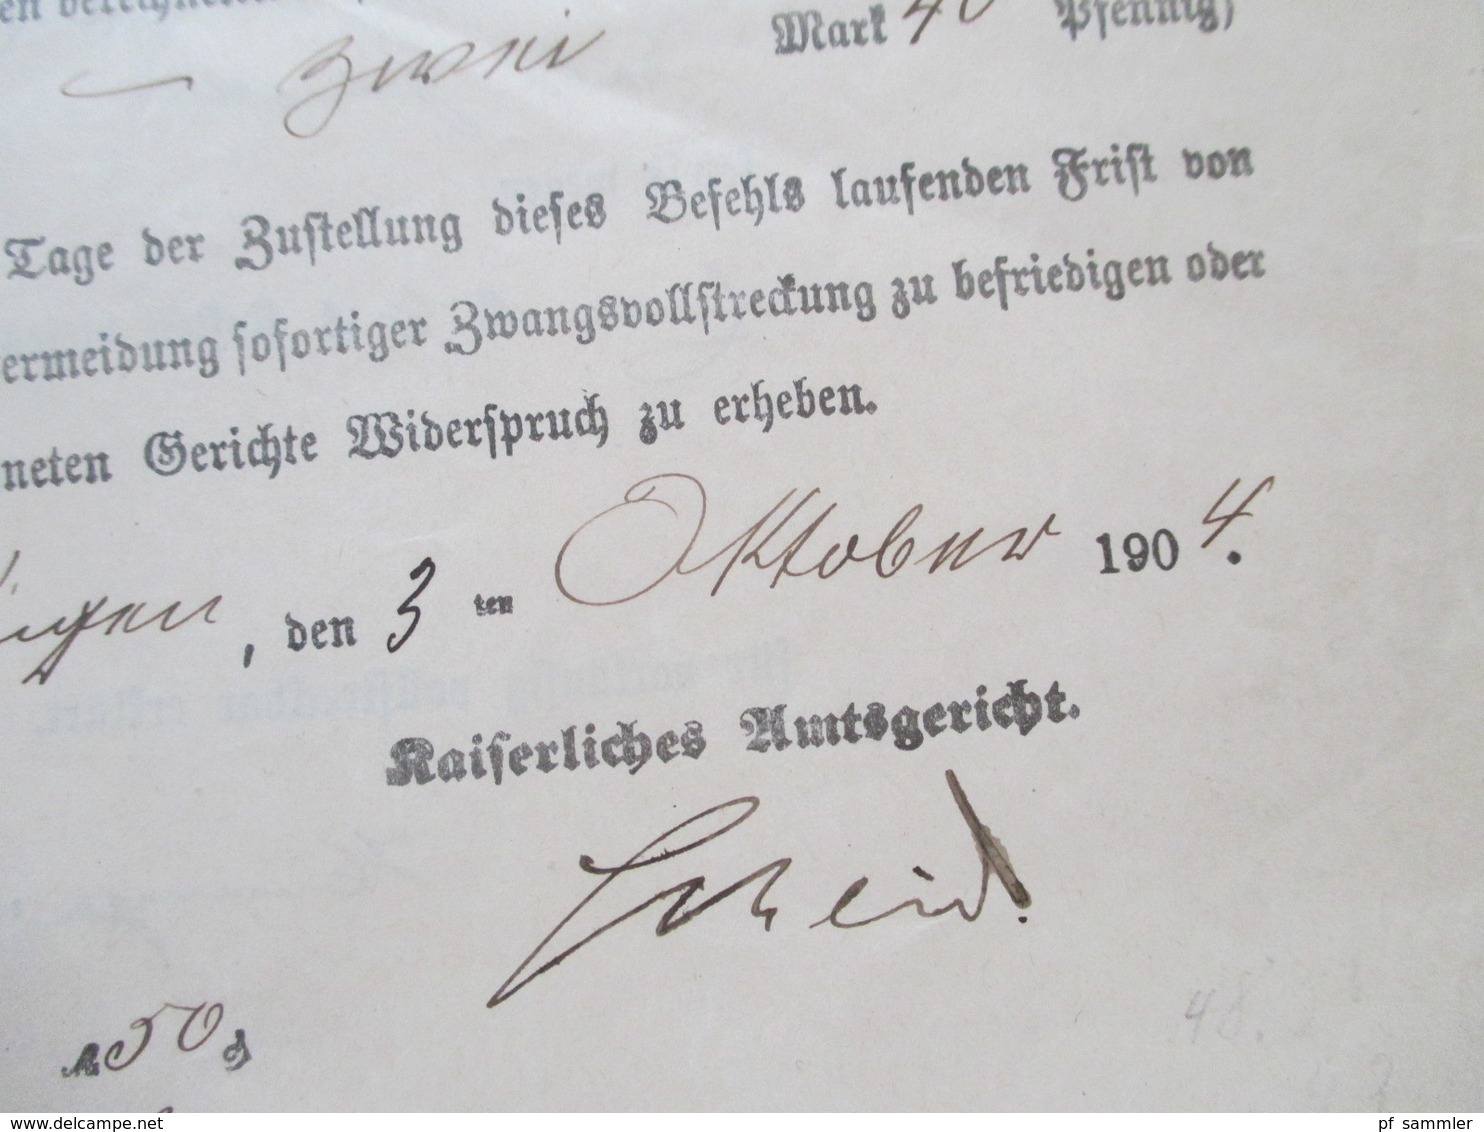 zwei Mark 40 Pfennig)
Tage der Zustellung dieses Befehls laufenden Frist von
ermeidung sofortiger Zwangsvollstreckung zu befriedigen oder
neten Gerichte Widerspruch zu erheben.
, den 3ten Oktober 1904.
Kaiserliches Amtsgericht.
Scheid.
ℳ 50 ₰
48.
delcampe.net
pf_sammler